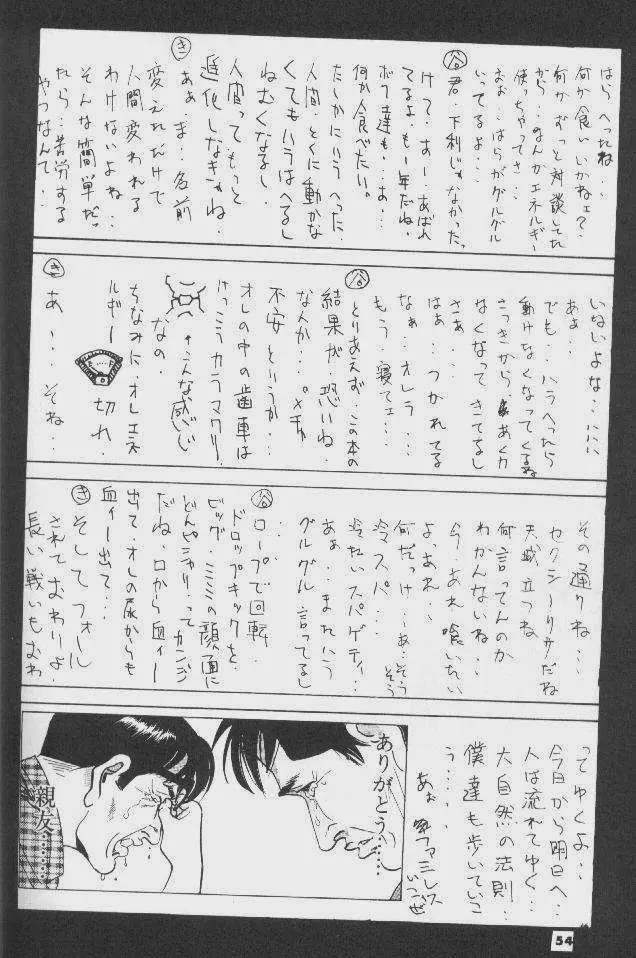 はらへったね‥
何か食いいかねェ?‥
何かずっと対談してた
から‥なんかエネルギー
使っちゃってさ‥
おぉ‥はらがグルグル
いってるよ‥‥
谷 君、下利じゃなかった
けて‥すーあばれ
てるよ、も一年だね、
ボク達も‥‥お‥‥
何か食べたい。
たしかにハラへった‥
人間、とくに動かな
くてもハラはへるし
ねむくなるし、
人間って、もっと
進化しなきゃね‥
き あぁ、ま、名前
変えただけで
人間変われる
わけないよね‥
そんな簡単だっ
たら‥苦労する
やつなんて‥‥
いないよな‥‥
あぁ‥
でも‥ハラへったら
動けなくなってくるね
さっきからあく力
なくなってきてるし
さぁ‥‥
はぁ‥つかれてる
なぁ‥オレラ‥‥
もう‥寝てェ‥‥
谷 とりあえず、この本の
結果が‥恐いね‥
なんか‥メチャ
不安というか‥
オレの中の歯車は
けっこうカラマワリ‥
↑こんな感じ
なの、
ちなみに、オレエネ
ルギー 切れ、
き あー‥‥そね‥
その通りね‥‥
セクシーリサだね
天城立つね
何言ってんのか
わかんないね‥‥
今、あれ喰いたい
よ、あれ‥
何だっけ‥あ、そうそう
冷スパ‥‥
冷たいスパゲティ‥‥
あぁ‥またハラ
グルグル言ってるし
‥
谷 ロープで回転、
ドロップキックを
ビッグ・ミミミの顔面に
どんピシャリ、ってカンジ
だね、口から血ィー
出て、オレの尿からも
血ィー出て‥‥
き そしてフォール
されておわりよ‥
長い戦いもおわ
ってゆくよ‥‥
今日から明日へ‥‥
人は流れてゆく‥‥
大自然の法則‥‥
僕達も歩いていこ
う‥‥っ
あぁ ファミレス
いこうぜ
ありがとう……
親友………
54